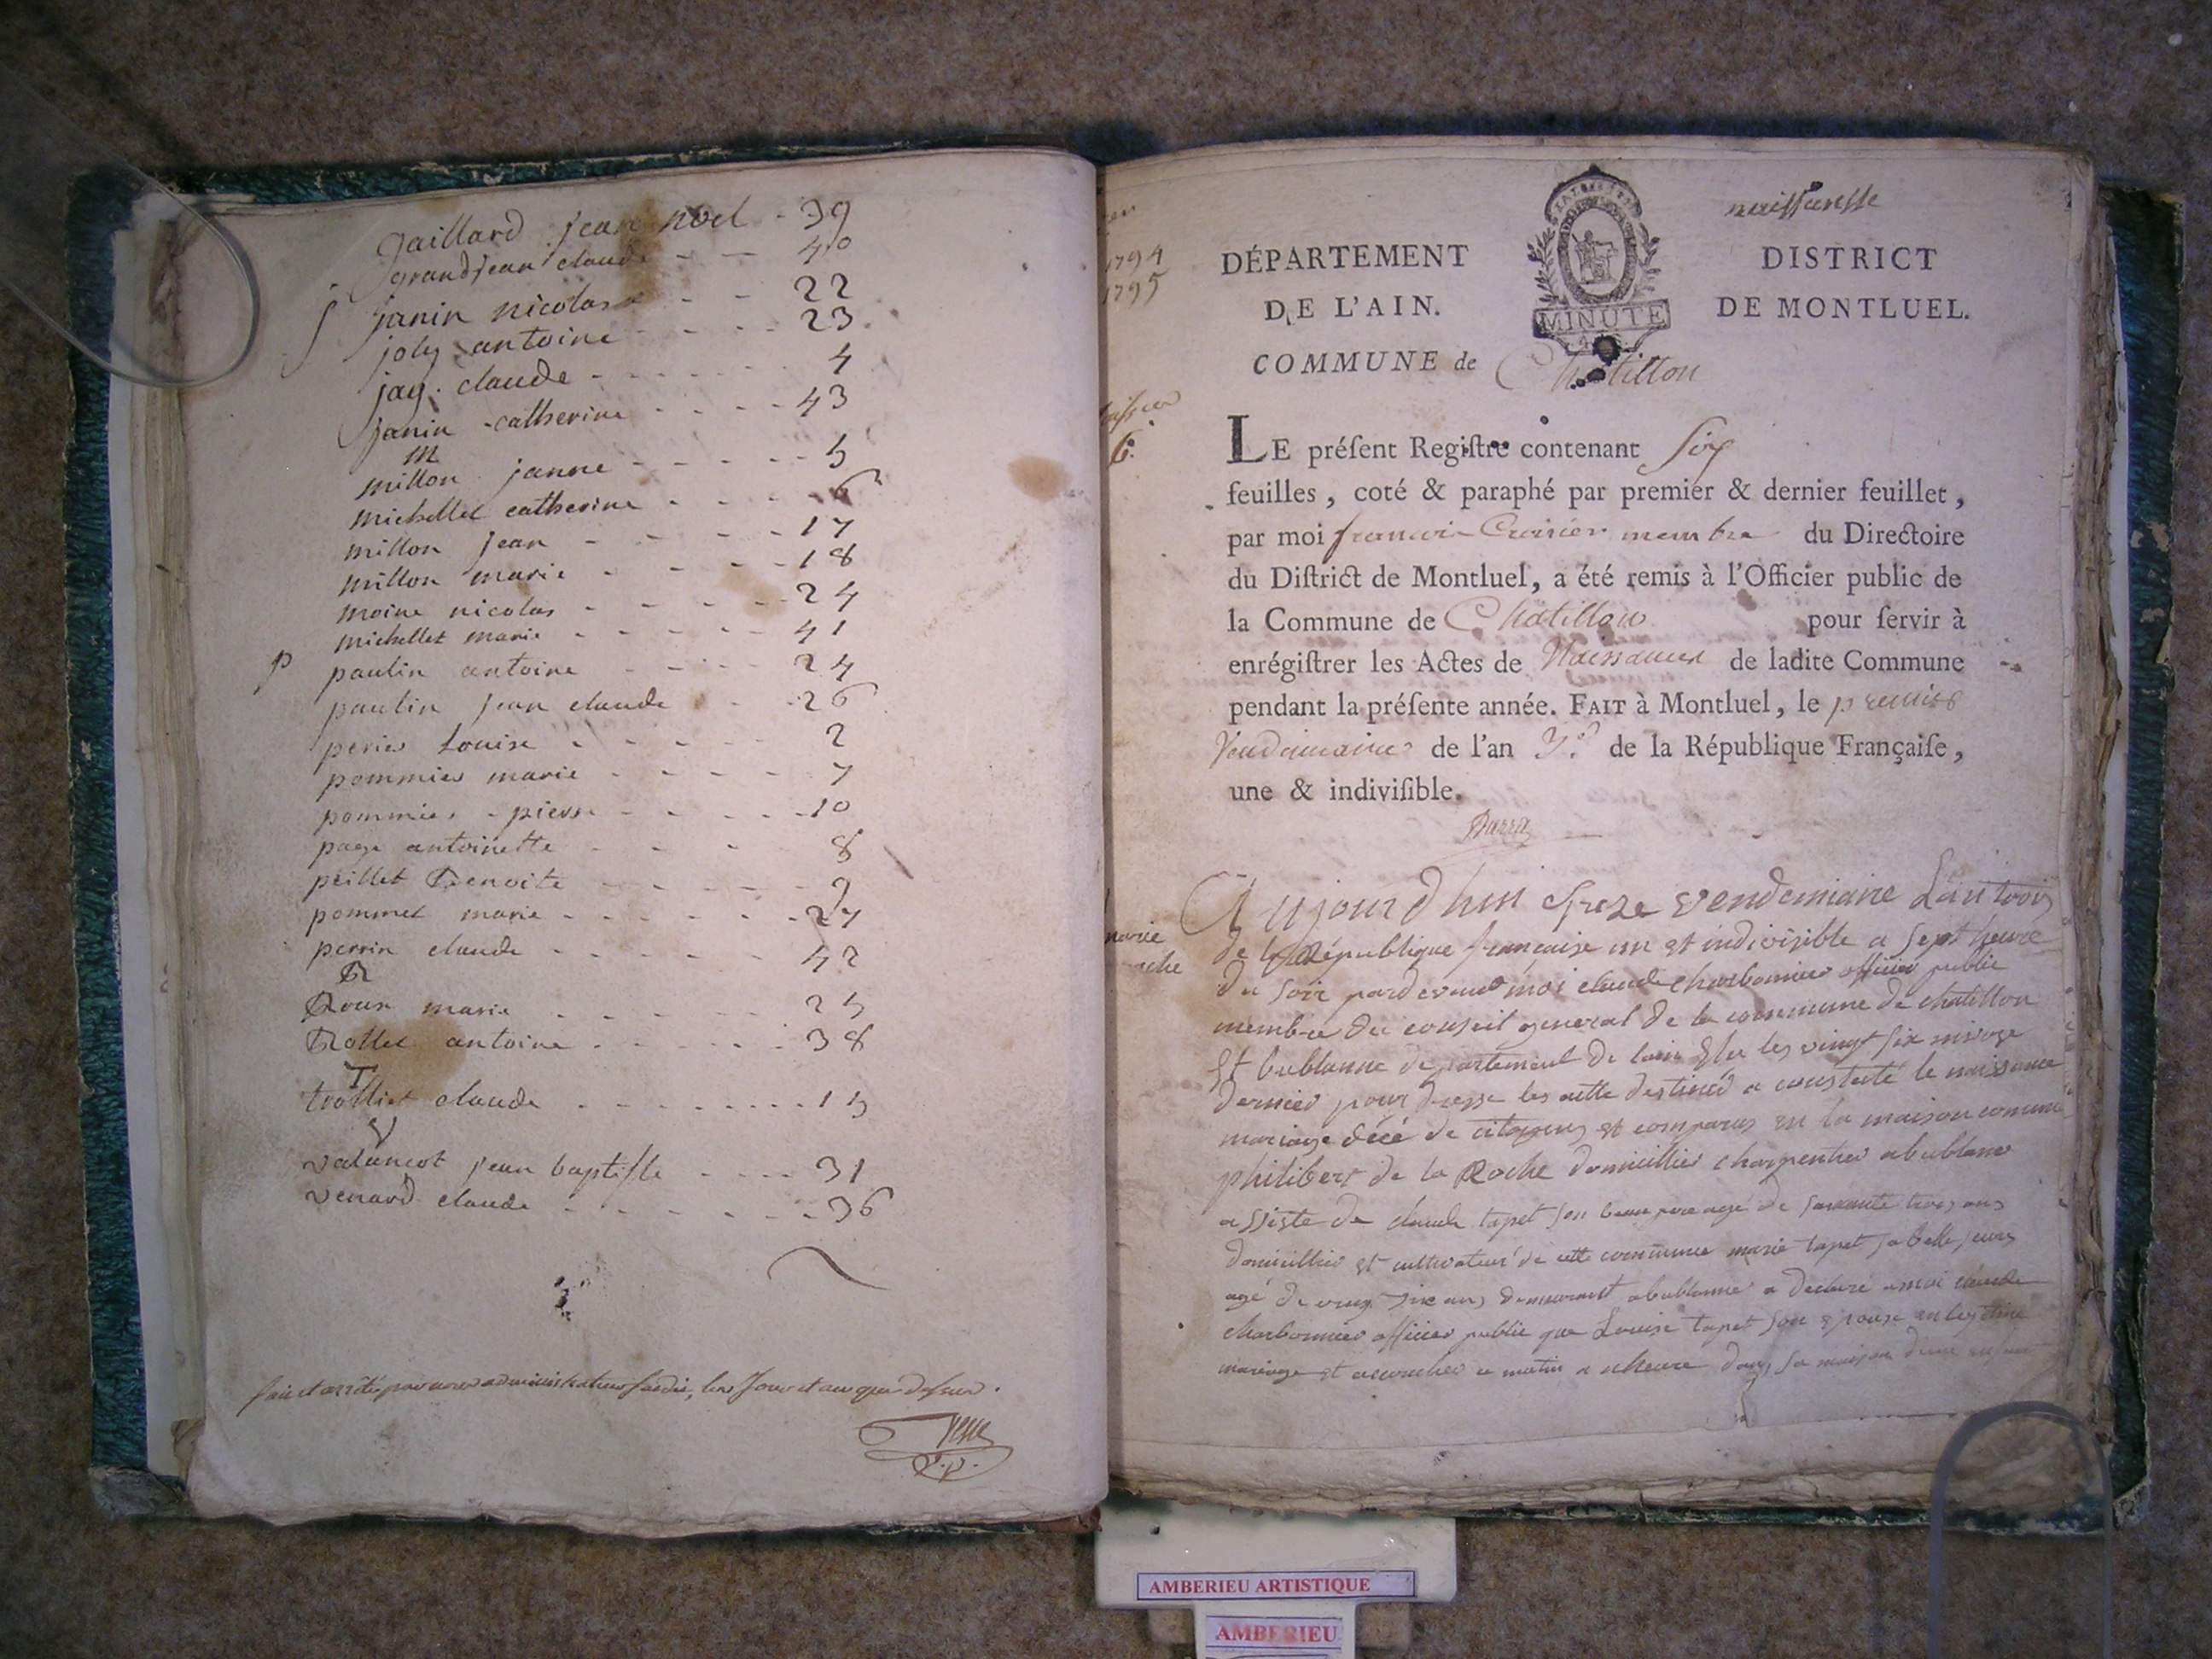 Gaillard jean noel - 39
grandjean claude - - 40
J janin nicolas - - 22
joly antoine - - - - 23
jay claude - - - - - - 4
janin catherine - - - - 43
M
millon janne - - - - - 5
michellet catherine - - - - 6
millon jean - - - - 17
millon marie - - - - 18
moine nicolas - - - - 24
michellet marie - - - - - 41
P paulin antoine - - - - 24
paulin jean claude - - 26
perier Louise - - - - 2
pommier marie - - - - 7
pommier - pierre - - - - 10
page antoinette - - - 8
peillet Benoite - - - - - 9
pommet marie - - - - - - 27
perrin claude - - - - - - 42
R
Roux marie - - - - - - 25
Rollet antoine - - - - - - 38
T
trolliet claude - - - - - - - - 15
V
valancot jean baptiste - - - - 31
venard claude - - - - - - - 36
fait et arrêté par nous administrateur susdit, les Jour et an que dessus.
1794
1795
6.
marie
naissansse
DÉPARTEMENT
DE L'AIN.
MINUTE
DISTRICT
DE MONTLUEL.
COMMUNE de Chatillon
LE préſent Regiſtre contenant Six
feuilles, coté & paraphé par premier & dernier feuillet,
par moi francois Croisier membre du Directoire
du Diſtrict de Montluel, a été remis à l'Officier public de
la Commune de Chatillon pour ſervir à
enrégiſtrer les Actes de Naissances de ladite Commune
pendant la préſente année. FAIT à Montluel, le premier
Vendemiaire de l'an 3.e de la République Françaiſe,
une & indiviſible.
Aujourd'hui seze vendemiaire L'an trois
de la République francaise un et indivisible a sept heure
du soir pardevant moi claude charbonnier officier public
membre du conseil general de la commune de chatillon
et bublanne departement de lain Elu les vingt six nivose
dernier pour dresse les actte destiné a constaté le naissance
mariage décé de citoyens et comparus en la maison commune
philibert de la Roche domicillier charpentier a bublane
assiste de claude tapet son beau pere age de soixante trois ans
domicillier et cultivateur de cette commune marie tapet sa belle seur
agé de vingt ans demeurant a bublanne a declaré a moi claude
charbonnier officier public que Louise tapet son epouse en legitime
mariage et accouchee ce matin a heure dans sa maison dune
AMBERIEU ARTISTIQUE
AMBERIEU